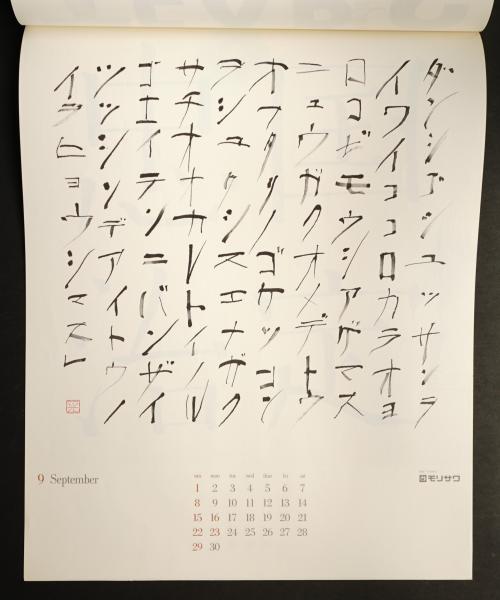 ダンシゴシュッサンヲ
イワイココロカラオヨ
ロコビモウシアゲマス
ニュウガクオメデトウ
オフタリノゴケッコン
ヲシュクシスエナガク
サチオオカレトイノル
ゴエイテンニバンザイ
ツツシンデアイトウノ
イヲヒョウシマス」
9 September
sun mon tue wed thu fri sat
1 2 3 4 5 6 7
8 9 10 11 12 13 14
15 16 17 18 19 20 21
22 23 24 25 26 27 28
29 30
モリサワ